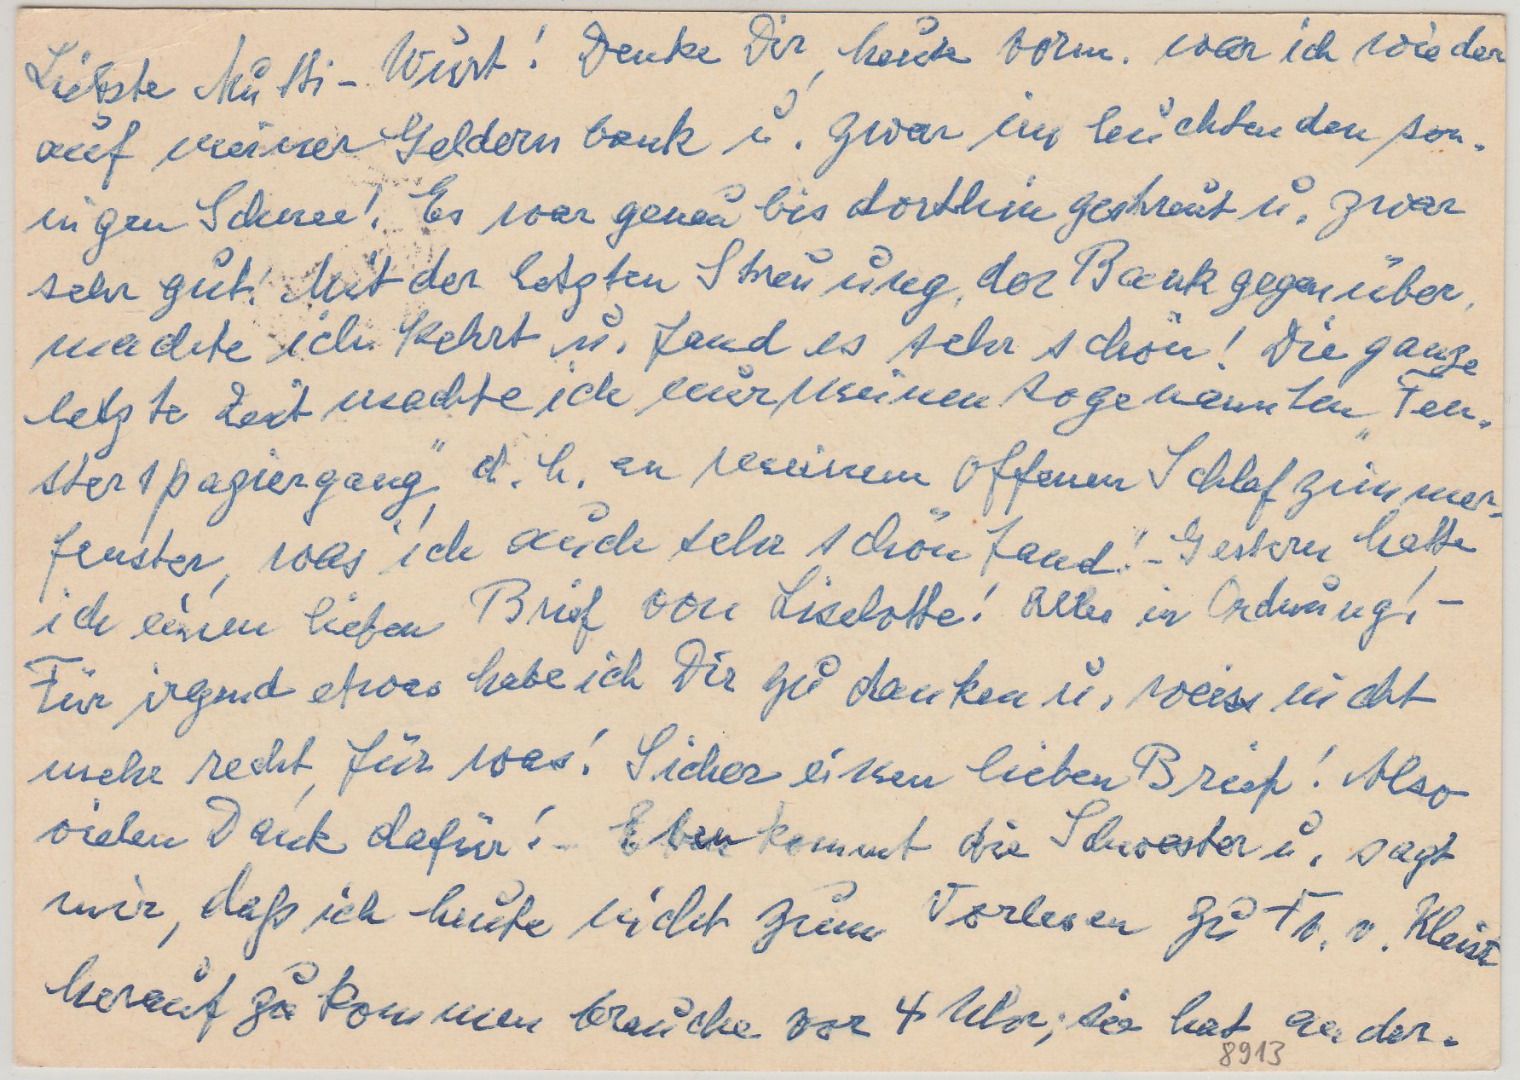 Liebste Mutti-Wurt! Denke Dir, heute vorm. war ich wieder
auf meiner Geldern bank u. zwar im leuchtenden son-
nigen Schnee! Es war genau bis dorthin gestreut u. zwar
sehr gut! Mit der letzten Streuung, der Bank gegenüber,
machte ich kehrt u. fand es sehr schön! Die ganze
letzte Zeit machte ich nur meinen sogenannten „Fen-
sterspaziergang", d. h. an meinem offenen Schlafzimmer-
fenster, was ich auch sehr schön fand! - Gestern hatte
ich einen lieben Brief von Liselotte! Alles in Ordnung! -
Für irgend etwas habe ich Dir zu danken u. weiss nicht
mehr recht, für was! Sicher einen lieben Brief! Also
vielen Dank dafür! - Eben kommt die Schwester u. sagt
mir, daß ich heute nicht zum Vorlesen zu Fr. v. Kleist
herauf zu kommen brauche vor 4 Uhr; sie hat ander-
8913